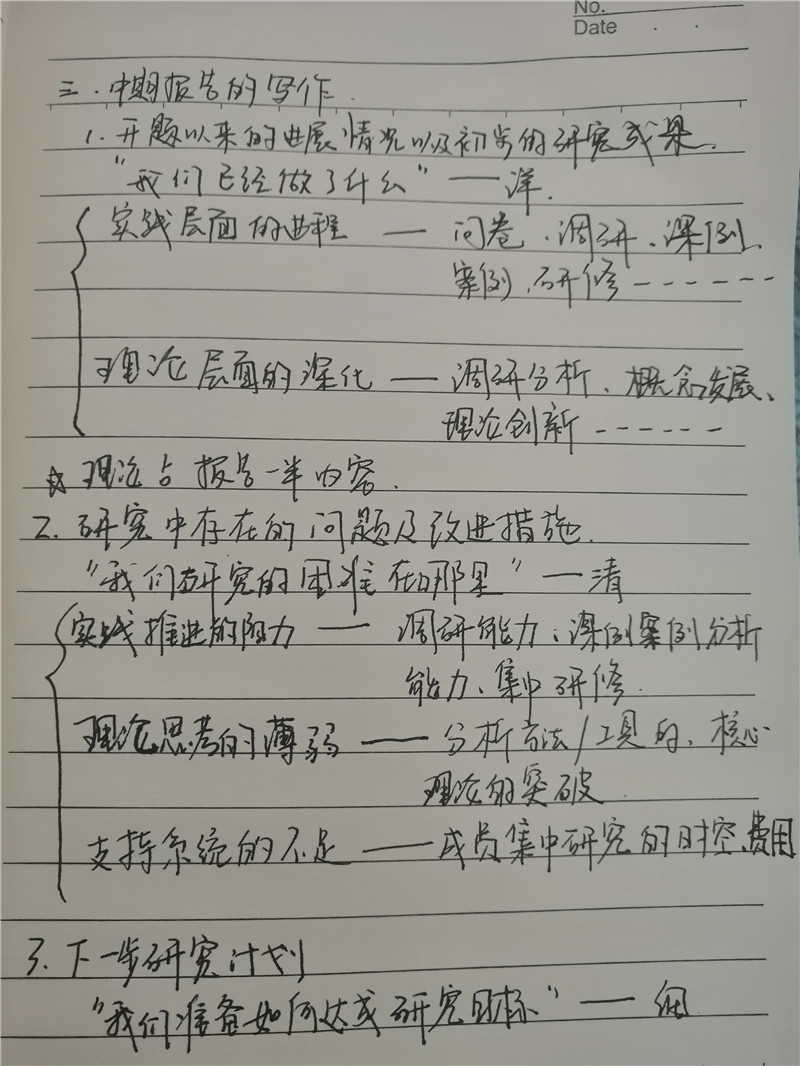 No.
Date
三.中期报告的写作.
1.开题以来的进展情况以及初步的研究成果.
"我们已经做了什么"——详.
实践层面的进程 — 问卷、调研、课例、
案例、研修------
理论层面的深化 — 调研分析、概念发展、
理论创新------
☆ 理论占报告一半内容.
2.研究中存在的问题及改进措施.
"我们研究的困难在哪里"——清
实践推进的阻力 — 调研能力、课例案例分析
能力、集中研修.
理论思考的薄弱 —— 分析方法/工具的、核心
理论的突破.
支持系统的不足 —— 成员集中研究的时空、费用
3.下一步研究计划
"我们准备如何达成研究目标"——细